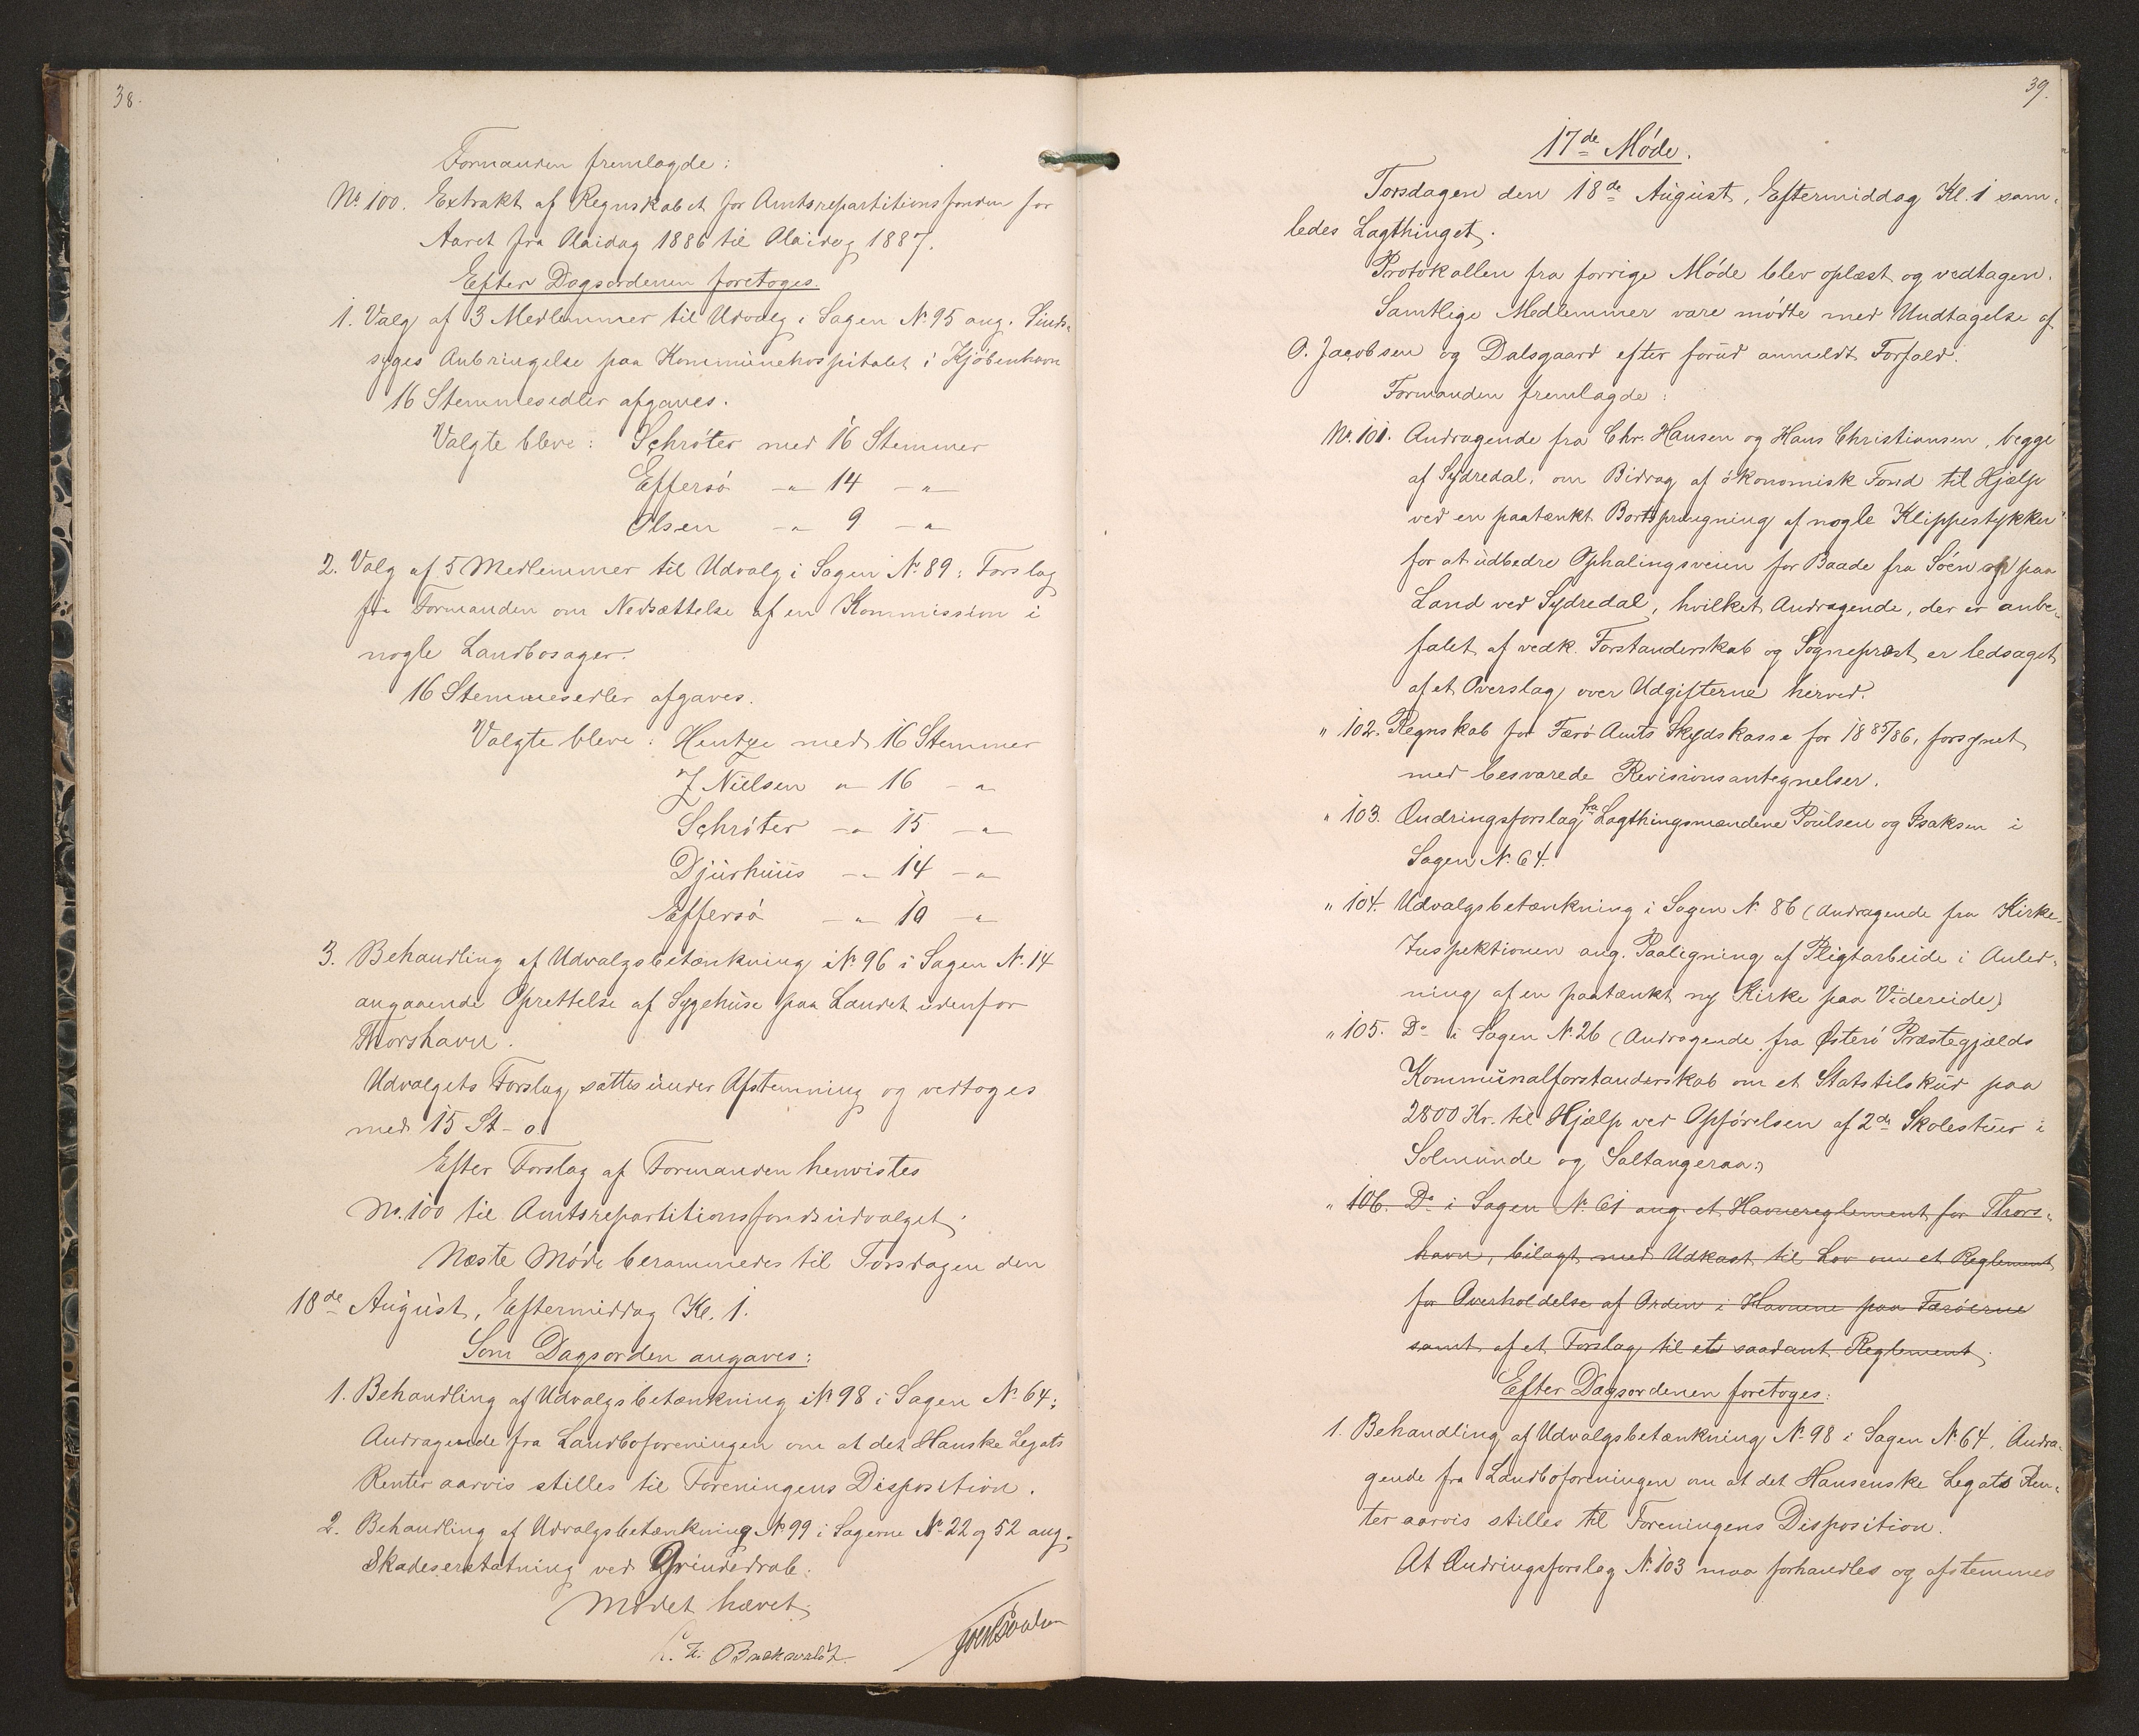 38.
Formanden fremlagde:
No. 100. Extrakt af Regnskabet for Amtsrepartitionsfonden for
Aaret fra Maidag 1886 til Maidag 1887.
Efter Dagsordenen foretoges.
1. Valg af 3 Medlemmer til Udvalg i Sagen No. 95 ang. Sinds-
syges Anbringelse paa Kommunehospitalet i Kjøbenhavn
16 Stemmesedler afgaves.
Valgte bleve: Schrøter med 16 Stemmer
Effersø -"- 14 -"-
Olsen -"- 9 -"-
2. Valg af 5 Medlemmer til Udvalg i Sagen No. 89: Forslag
fra Formanden om Nedsættelse af en Kommission i
nogle Landbosager.
16 Stemmesedler afgaves.
Valgte bleve: Hentze med 16 Stemmer
J Nielsen -"- 16 -"-
Schrøter -"- 15 -"-
Djurhuus -"- 14 -"-
Effersø -"- 10 -"-
3. Behandling af Udvalgsbetænkning No. 96 i Sagen No. 14
angaaende Oprettelse af Sygehuse paa Landet udenfor
Thorshavn.
Udvalgets Forslag sattes under Afstemning og vedtoges
med 15 St - 0.
Efter Forslag af Formanden henvistes
No. 100 til Amtsrepartitionsfondsudvalget.
Næste Møde berammedes til Torsdagen den
18de August, Eftermiddag Kl. 1.
Som Dagsorden angaves:
1. Behandling af Udvalgsbetænkning No 98 i Sagen No. 64:
Andragende fra Landboforeningen om at det Hanske Legats
Renter aarvis stilles til Foreningens Disposition.
2. Behandling af Udvalgsbetænkning No 99 i Sagerne No. 22 og 52 ang.
Skadeserstatning ved Grindedrab.
Mødet hævet.
H. Buchwaldt.
39.
17de Møde.
Torsdagen den 18de August, Eftermiddag Kl. 1 sam-
ledes Lagthinget.
Protokollen fra forrige Møde blev oplæst og vedtagen.
Samtlige Medlemmer vare mødte med Undtagelse af
O. Jacobsen og Dalsgaard efter forud anmeldt Forfald.
Formanden fremlagde:
No. 101. Andragende fra Chr. Hansen og Hans Christiansen, begge
af Sydredal, om Bidrag af økonomisk Fond til Hjælp
ved en paatænkt Bortsprængning af nogle Klippestykker
for at udbedre Ophalingsveien for Baade fra Søen op paa
Land ved Sydredal, hvilket Andragende, der er anbe-
falet af vedk. Forstanderskab og Sognepræst er ledsaget
af et Overslag over Udgifterne herved.
" 102. Regnskab for Færø Amts Skydskasse for 1885/86, forsynet
med besvarede Revisionsantegnelser.
" 103. Ændringsforslag fra Lagthingsmændene Poulsen og Isaksen i
Sagen No. 64.
" 104. Udvalgsbetænkning i Sagen No. 86 (Andragende fra Kirke-
Inspektionen ang. Paaligning af Pligtarbeide i Anled-
ning af en paatænkt ny Kirke paa Videreide)
" 105. Do i Sagen No. 26 (Andragende fra Østerø Præstegjælds
Kommunalforstanderskab om et Statstilskud paa
2800 Kr. til Hjælp ved Opførelsen af 2de Skolestuer i
Solmunde og Saltangeraa.)
" 106. Do i Sagen No. 61 ang. et Havnereglement for Thors-
havn, bilagt med Udkast til Lov om et Reglement
for Overholdelse af Orden i Havnene paa Færøerne
samt af et Forslag til et saadant Reglement.
Efter Dagsordenen foretoges:
1. Behandling af Udvalgsbetænkning No. 98 i Sagen No 64, Andra-
gende fra Landboforeningen om at det Hansenske Legats Ren-
ter aarvis stilles til Foreningens Disposition.
At Ændringsforslag No. 103 maa forhandles og afstemmes